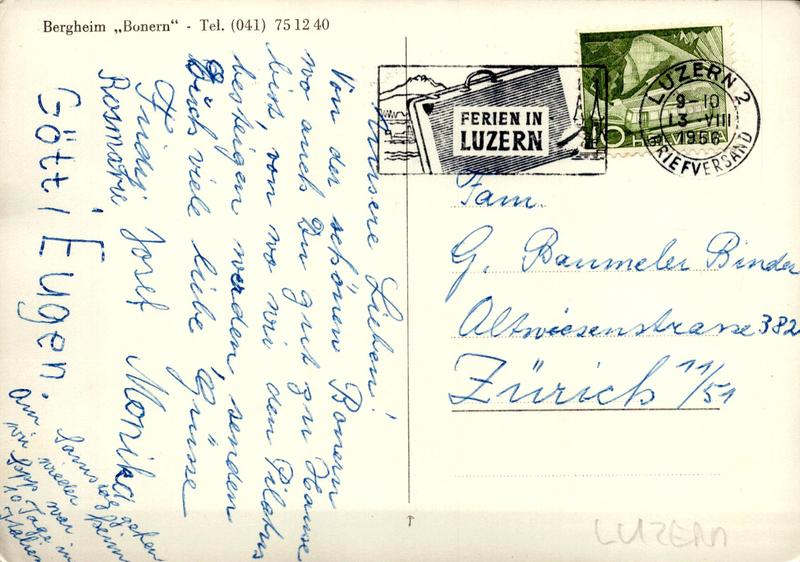 Bergheim „Bonern“ - Tel. (041) 75 12 40
FERIEN IN
LUZERN
LUZERN 2
9-10
13.-VIII
1956
BRIEFVERSAND
10 HELVETIA
Unsere Lieben!
Von der schönen Bonern
wo auch Du gut zu Hause
bist von wo wir den Pilatus
besteigen werden, senden
Euch viele liebe Grüsse
Fridy Josef Monika
Rosmarie
Götti Eugen.
Am Samstag gehen
wir wieder heim
Sepp war in
10 Tage
Italien
Fam.
G. Baumeler Binder
Altwiesenstrasse 382
Zürich 11/51
LUZERN